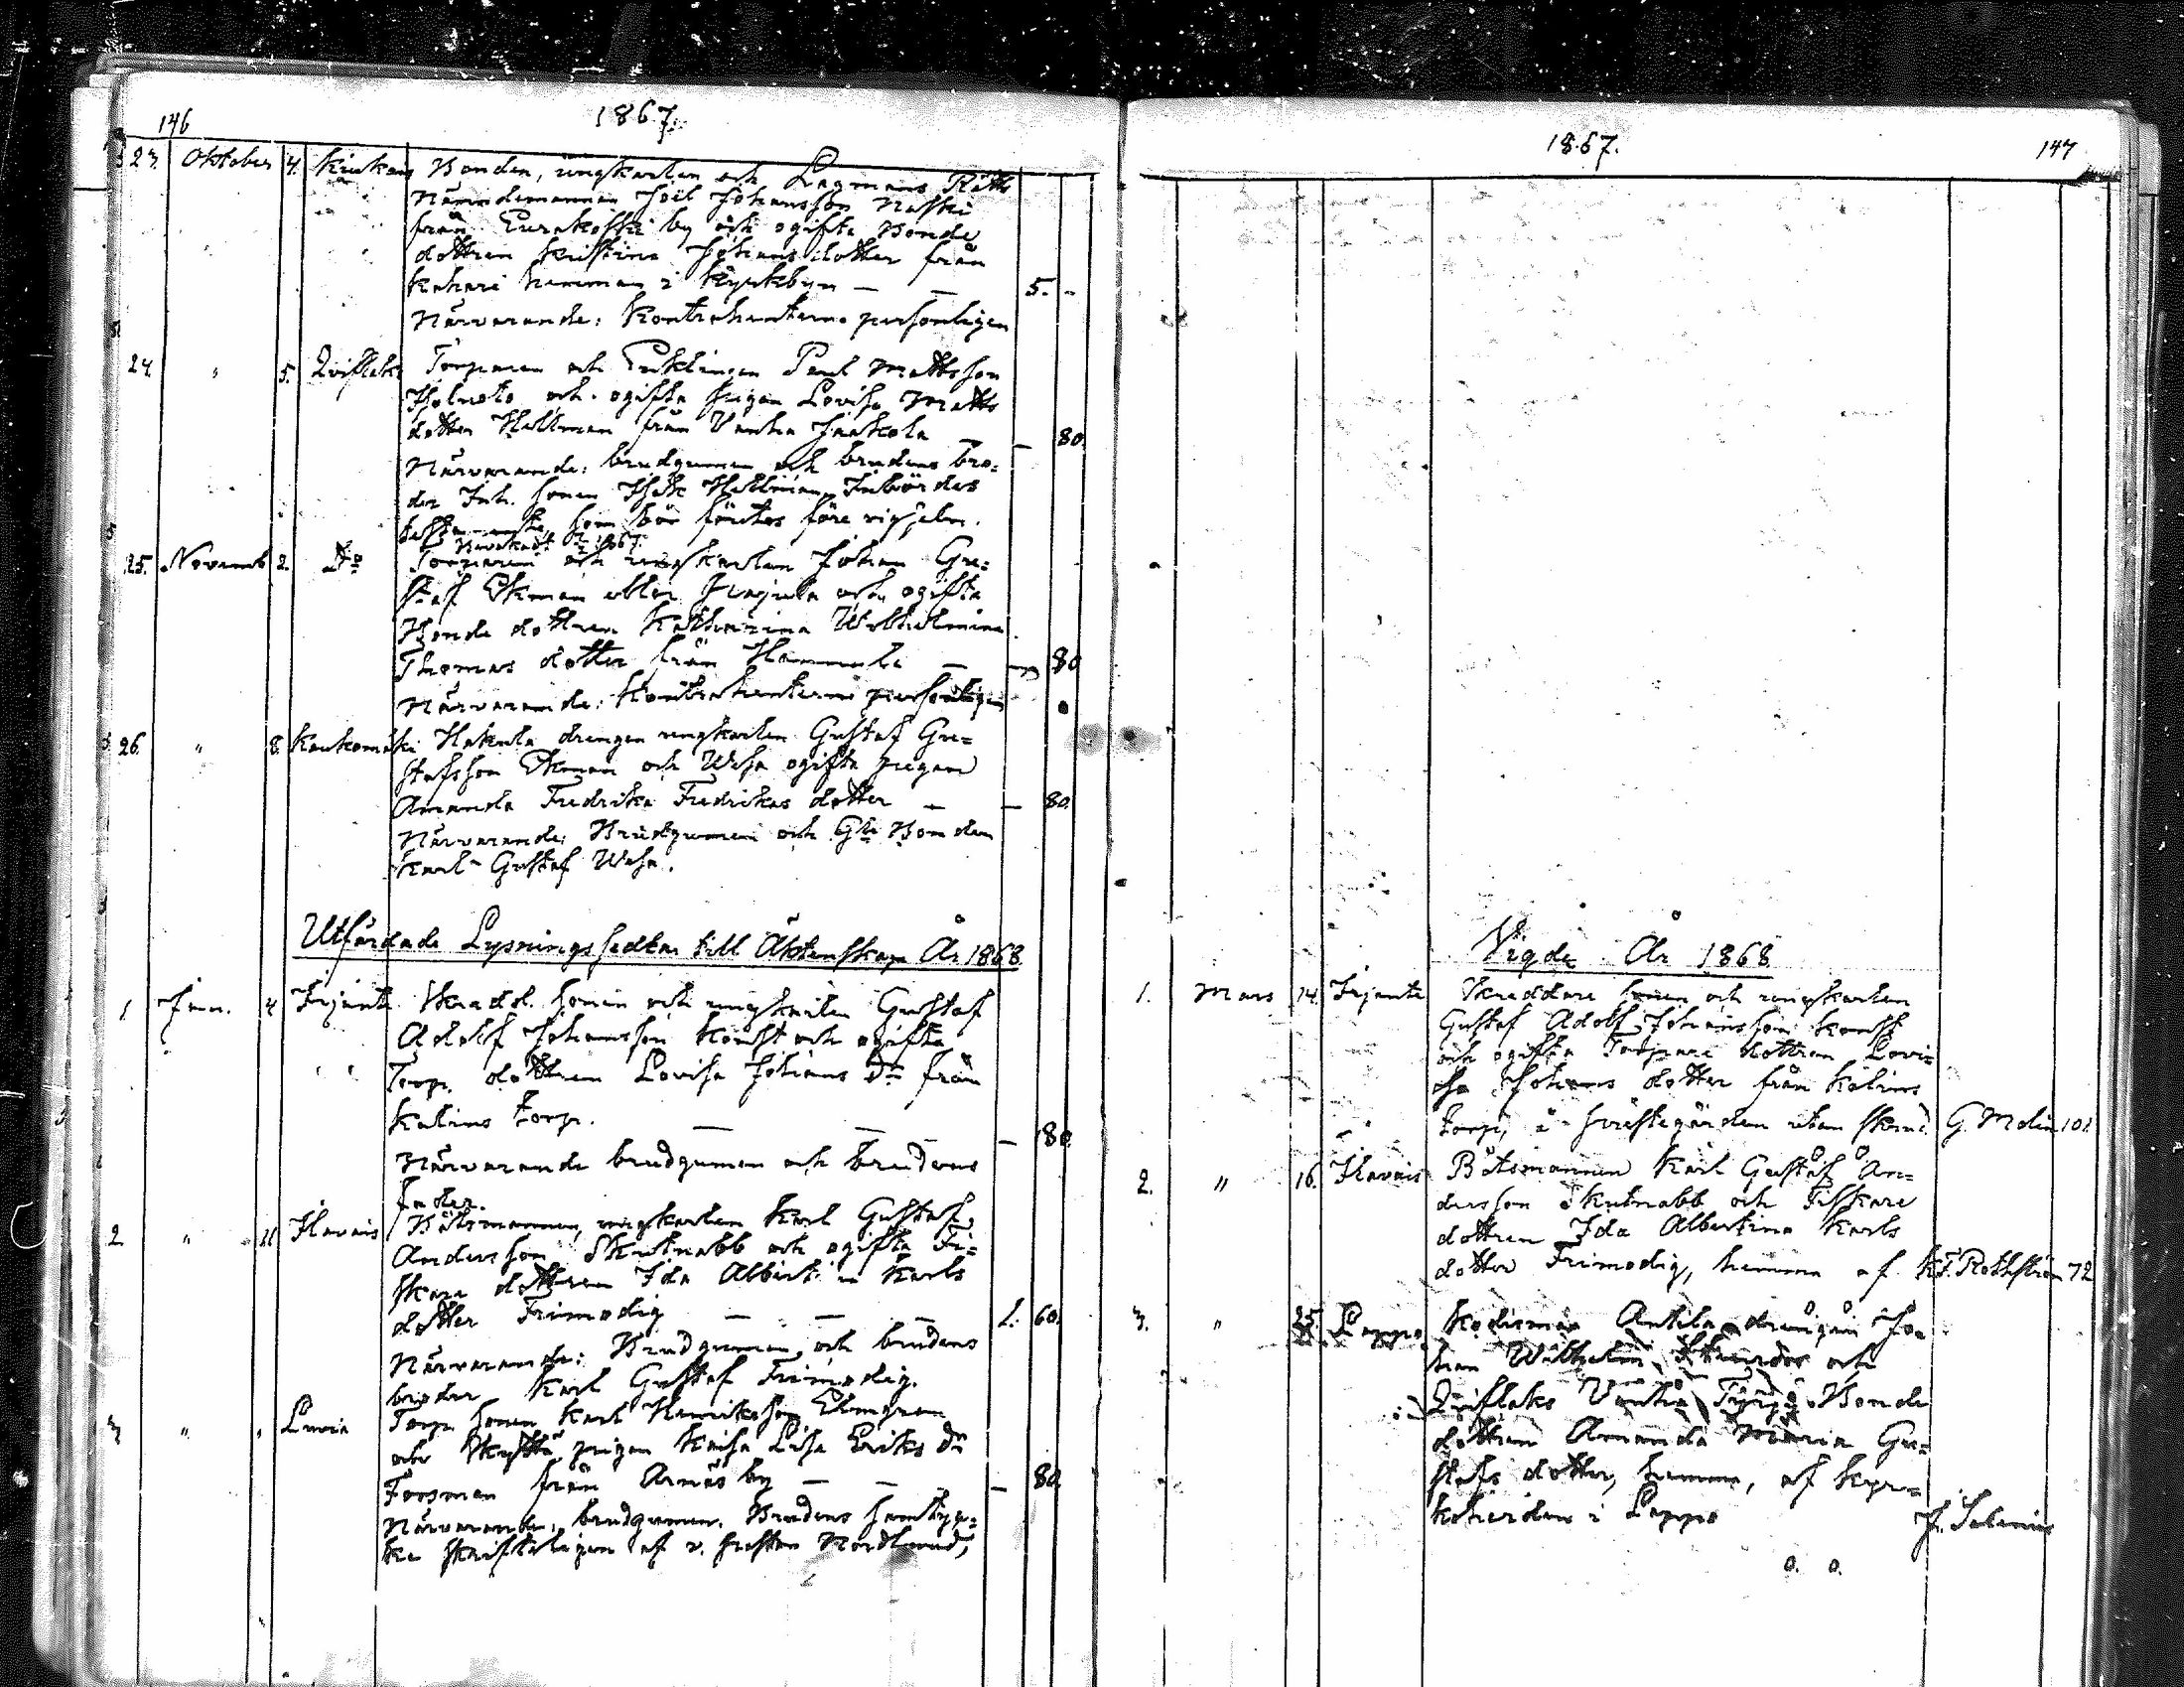 146
1867.
23. Oktober 4. Bonden, ungkarlen och Lagmans Rätts
Nämndemannen Joël Johansson Naski
från Eurakoski by och ogifta Bonde
dottren Kristina Johans dotter från
Kahari hemman i Kyrkbyn — — 5. -
Närvarande: Kontrahenterna personligen
24. " 5. Qviflaks Torparen och Enklingen Paul Mattsson
och ogifta pigan Lovisa Matts
dotter Hellman från Vanha Jaakola — — 80.
Närvarande: brudgumen och brudens bro-
der Inh. sonen Isak Hellman. Inbördes
som bör företes före vigseln.
25. Novemb 2. Do Torparen och ungkarlen Johan Gu-
staf Ekman eller och ogifta
Bonde dottren Katharina Wilhelmina
Thomas dotter från Hammala — — 80
Närvarande: Kontrahenterna personligen
26. " 8. Kaukomäki Hakula drengen ungkarlen Gustaf Gu-
stafsson Ekman och Wesa ogifta pigan
Amanda Fredrika Fredriks dotter — — 80.
Närvarande: Brudgumen och Gle Bonden
Karl Gustaf Wesa.
Utfärdade Lysningssedlar till Äktenskap År 1868
1. Jan. 4 Irjanta Skradd. sonen och ungkarlen Gustaf
Adolf Johansson Konst och ogifta
Torp. dottren Lovisa Johans Dr från
Kalins torp. — — — — 80.
Närvarande brudgumen och brudens
fader.
2 " 11 Ilavais Båtsmannen, ungkarlen Karl Gustaf
Andersson Skutnabb och ogifta Fi-
skare dottren Ida Albertina Karls
dotter Frimodig — — — 1. 60.
Närvarande: Brudgumen och brudens
broder Karl Gustaf Frimodig.
3 " " Luvia Torp. sonen Karl Henriksson Elmgren
och pigan Kaisa Lisa Eriks Dr
Forsman från Arnäs by — — — 80.
Närvarande: brudgumen. Brudens samtyc-
ke skrifteligen af v. pastor Nordlund,
18.67.
147
Vigde År 1868
1. Mars 14. Irjanta Skreddare sonen och ungkarlen
Gustaf Adolf Johansson Konst
och ogifta Torpare dottren Lovi-
sa Johans dotter från Kalins
torp, i prästegården utan skrud G. Molin 101.
2. " 16. Ilavais Båtsmannen Karl Gustaf An-
dersson Skutnabb och Fiskare
dottren Ida Albertina Karls
dotter Frimodig, hemma af K.F. Rothström 72
3. " 25. Lappo Kodismä Antila drängen Jo-
han Wilhelm och
Qviflaks Vanha Bonde
dottren Amanda Maria Gu-
stafs dotter, hemma, af kyr-
koherden i Lappo F. Salenius
0. 0.